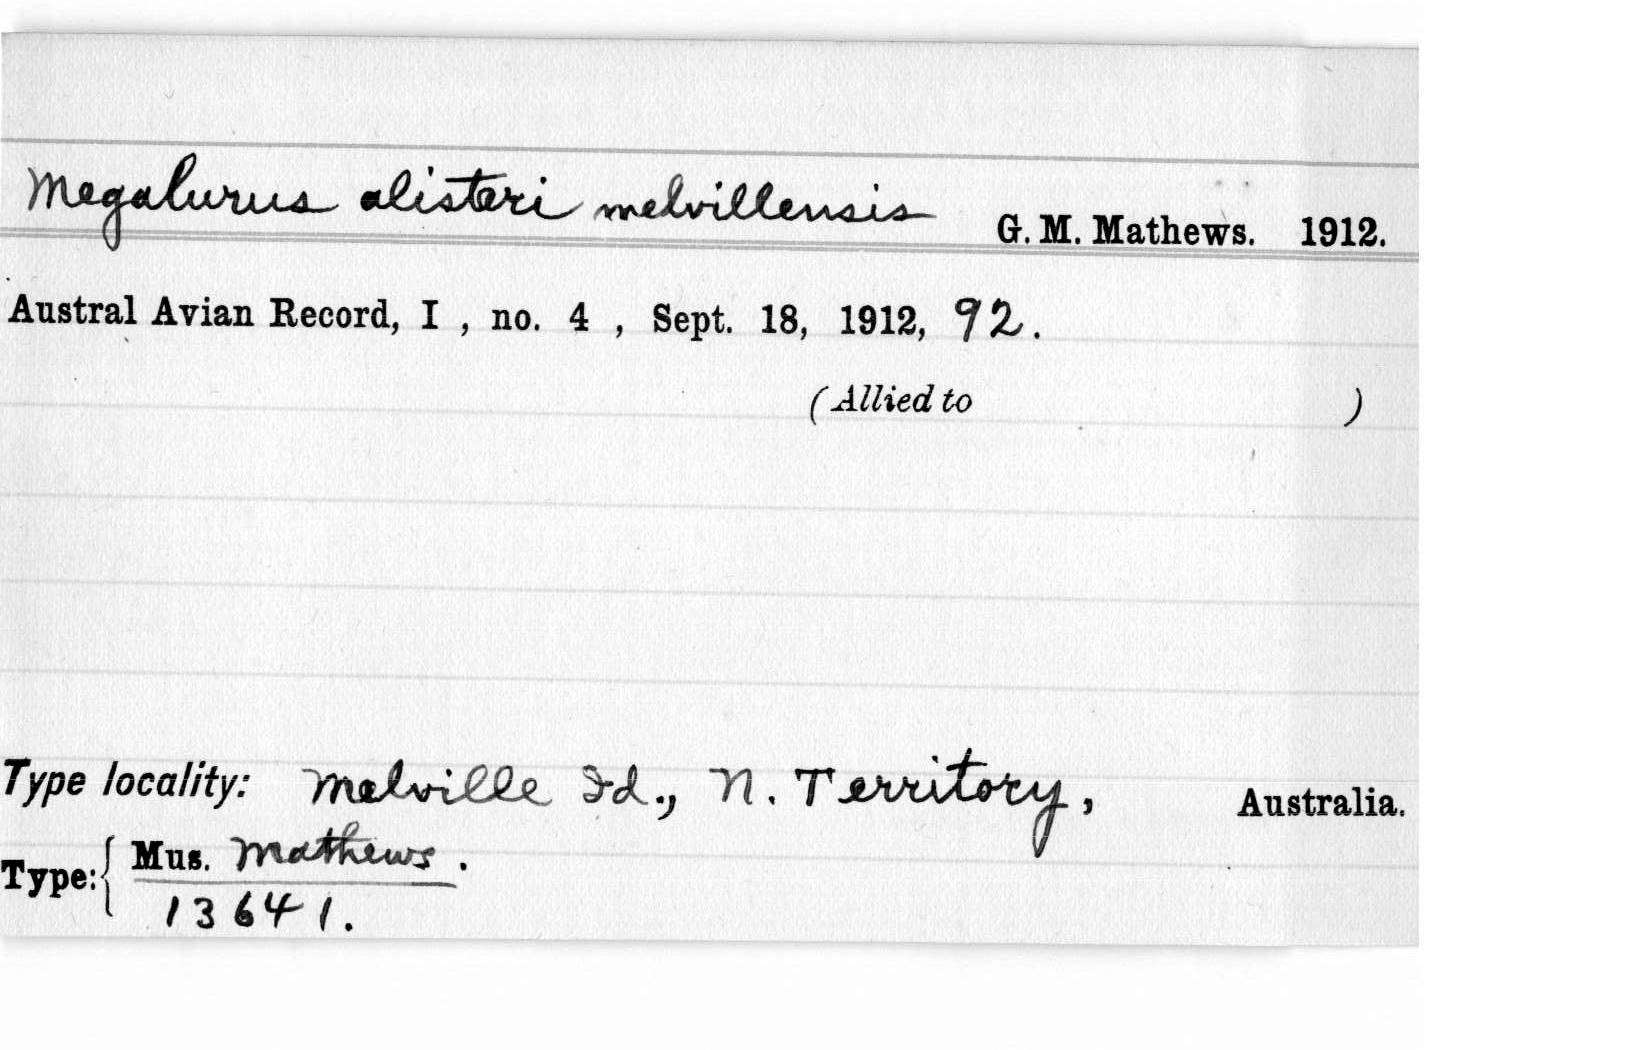 Megalurus alisteri melvillensis G. M. Mathews. 1912.
Austral Avian Record, I , no. 4 , Sept. 18, 1912, 92.
(Allied to )
Type locality: Melville Id., N. Territory, Australia.
Type: { Mus. Mathews.
13641.